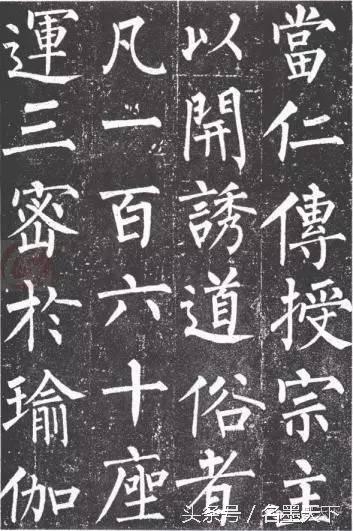 當仁傳授宗主
以開誘道俗者
凡一百六十座
運三密於瑜伽
头条号／名墨天下